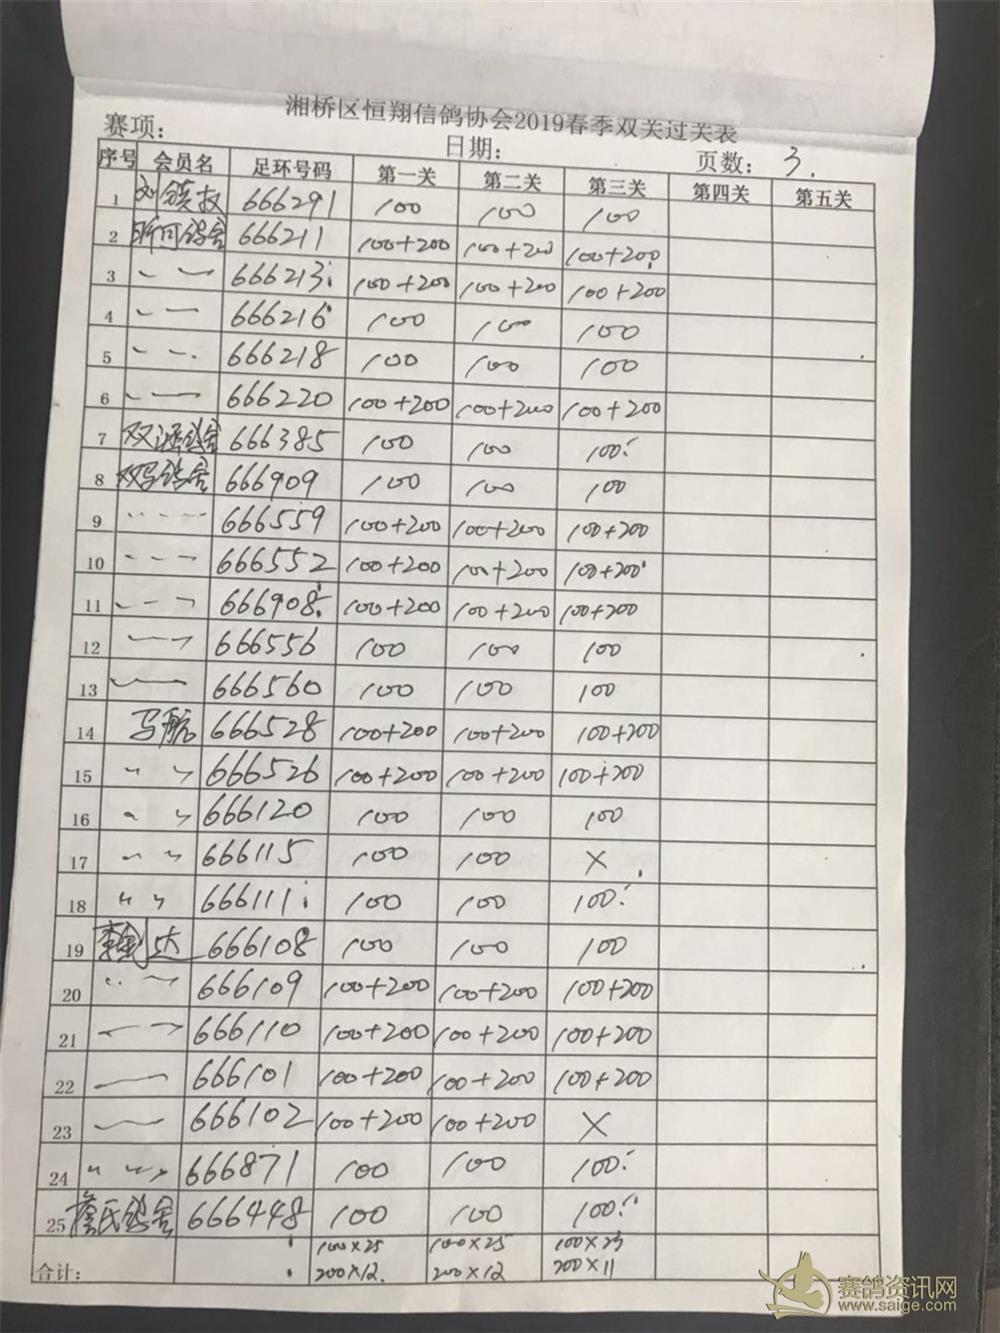 湘桥区恒翔信鸽协会2019春季双关过关表
赛项: 日期: 页数: 3.
序号 会员名 足环号码 第一关 第二关 第三关 第四关 第五关
1 666291 100 100 100
2 昕可鸽舍 666211 100+200 100+200 100+200
3 〃 666213 100+200 100+200 100+200
4 〃 666216 100 100 100
5 〃 666218 100 100 100
6 〃 666220 100+200 100+200 100+200
7 双涵鸽舍 666385 100 100 100
8 双马鸽舍 666909 100 100 100
9 〃 666559 100+200 100+200 100+200
10 〃 666552 100+200 100+200 100+200
11 〃 666908 100+200 100+200 100+200
12 〃 666556 100 100 100
13 〃 666560 100 100 100
14 马航 666528 100+200 100+200 100+200
15 〃 666526 100+200 100+200 100+200
16 〃 666120 100 100 100
17 〃 666115 100 100 ×
18 〃 666111 100 100 100
19 达 666108 100 100 100
20 〃 666109 100+200 100+200 100+200
21 〃 666110 100+200 100+200 100+200
22 〃 666101 100+200 100+200 100+200
23 〃 666102 100+200 100+200 ×
24 〃 666871 100 100 100
25 詹氏鸽舍 666448 100 100 100
合计: 100×25 100×25 100×23
200×12. 200×12 200×11
赛鸽资讯网
www.saige.com